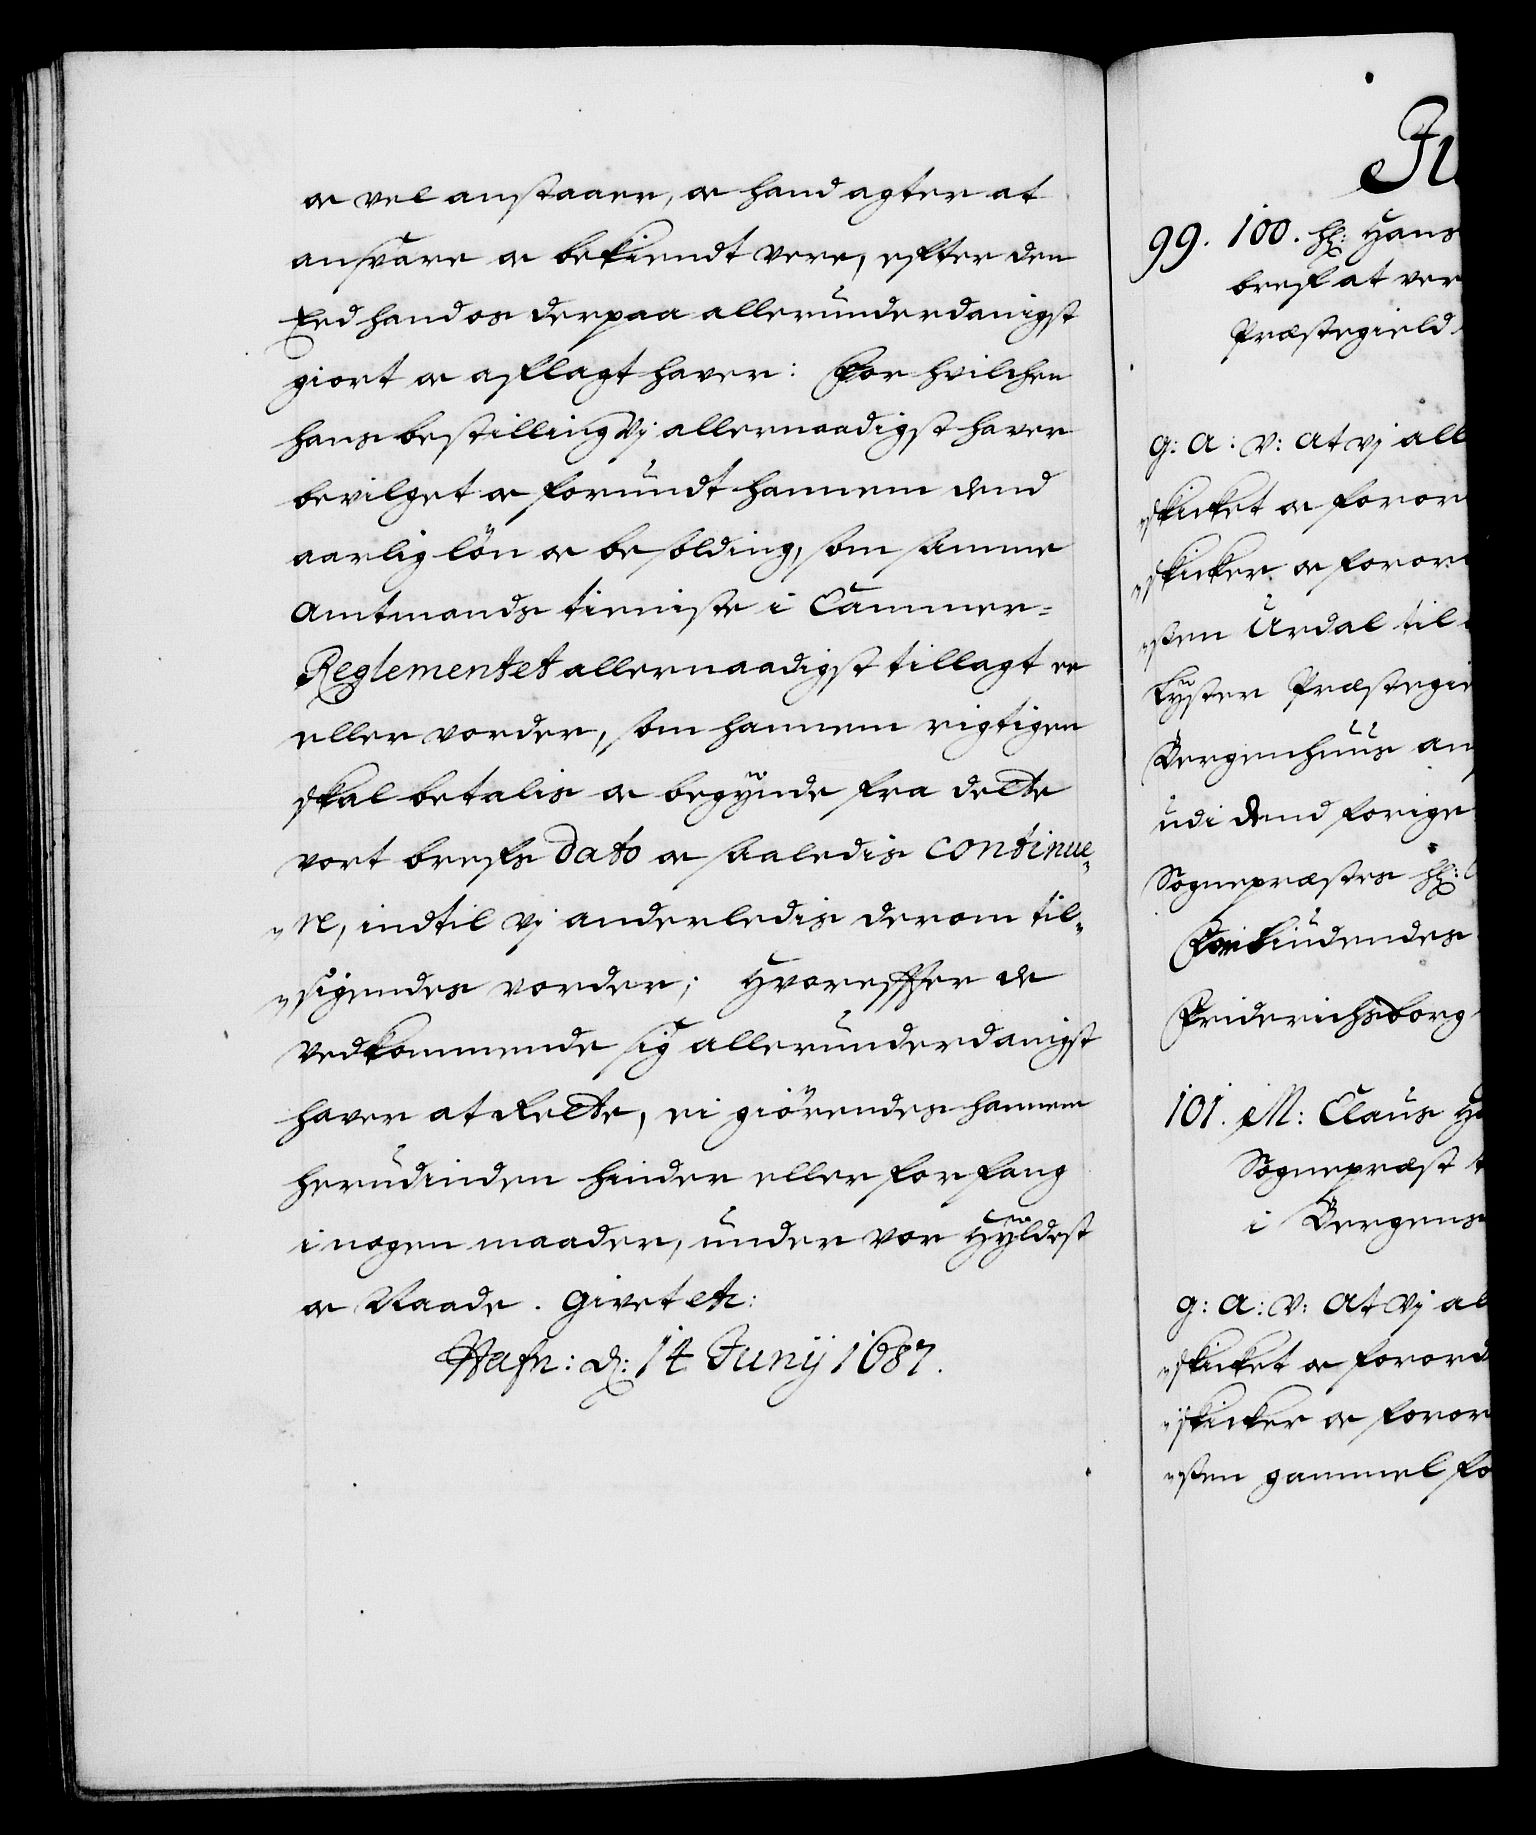 oc vel anstaaer, oc hand agter at
ansvare oc bekiendt vere, efter den
Eed hand os derpaa allerunderdanigst
giort oc aflagt haver: For hvilchen
hans bestilling vj allernaadigst haver
bevilget oc forundt hannem dend
aarlig lön oc besolding, som samme
Amtmands tieniste i Cammer=
Reglementet allernaadigst tillagt er
eller vorder, som hannem rigtigen
skal betalis oc begynde fra dette
vort brefs Dato oc saaledis continue„
„re, indtil vj anderledis derom til„
„sigendes vorder; Hvorefter de
vedkommende sig allerunderdanigst
haver at rette, ei giörendes hannem
herudinden hinder eller forfang
i nogen maader, under vor Hyldest
oc Naade. Givet etc:
Hafn: d: 14 Junij 1687.
Ju
99. 100. hr: Hans
bref at ver
Præstegield
G: A: V: At vj all
„skicket oc foror
„skicker oc foror
„sten Urdal til
Lyster Præstegie
Bergenhuus am
udi dend forige
Sognepræstes hr:
Forbindendes
Friderichsborg
101. M: Claus H
Sognepræst t
i Bergens
G: A: V: At vj al
„skicket oc forord
„skicker oc foror
„sten gammel fo